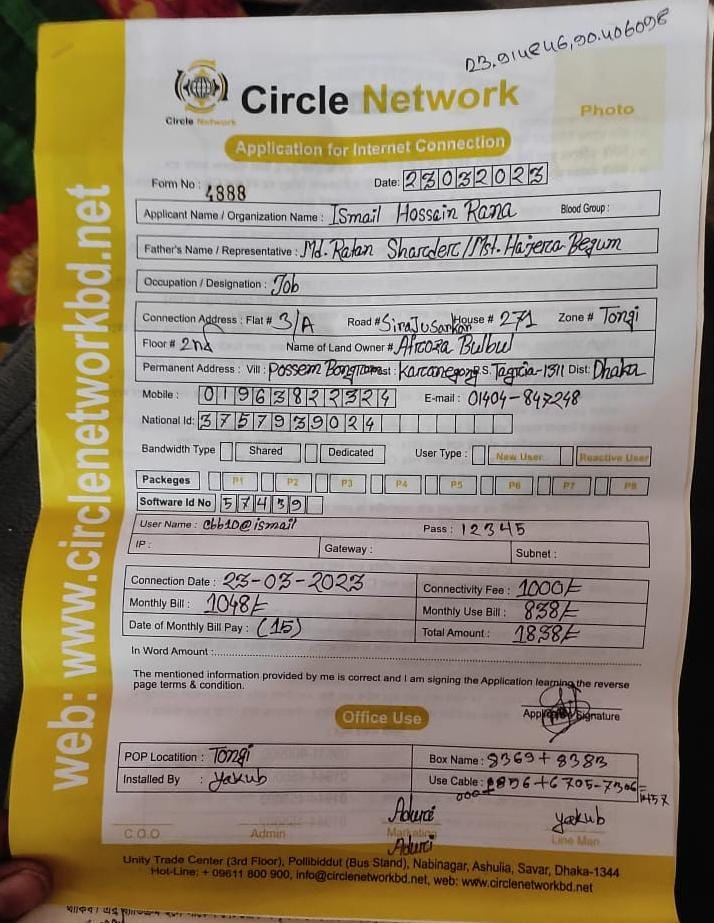 23.914846,90.406098
Circle Network
Circle Network
Photo
Application for Internet Connection
Form No : 4888
Date: 23032023
Applicant Name / Organization Name : Ismail Hossain Rana Blood Group :
Father's Name / Representative : Md. Ratan Sharder / Mst. Hajera Begum
Occupation / Designation : Job
Connection Address : Flat # 3/A Road # House # 271 Zone # Tongi
Floor # 2nd Name of Land Owner # Afroza Bulbul
Permanent Address : Vill : Dist: Dhaka
Mobile : 01963822324 E-mail : 01404-847248
National Id: 3757939024
Bandwidth Type Shared Dedicated User Type : New User Reactive User
Packeges P1 P2 P3 P4 P5 P6 P7 P8
Software Id No 57439
User Name : cbb10@ismail Pass : 12345
IP : Gateway : Subnet :
Connection Date : 23-03-2023 Connectivity Fee : 1000/=
Monthly Bill : 1048/= Monthly Use Bill : 838/=
Date of Monthly Bill Pay : (15) Total Amount : 1838/=
In Word Amount :
The mentioned information provided by me is correct and I am signing the Application learning the reverse
page terms & condition.
Signature
Office Use
POP Locatition : Tongi Box Name : 8369 + 8383
Installed By : Yakub Use Cable :
Aduri Yakub
C.O.O Admin Marketing Line Man
Aduri
Unity Trade Center (3rd Floor), Pollibiddut (Bus Stand), Nabinagar, Ashulia, Savar, Dhaka-1344
Hot-Line: + 09611 800 900, info@circlenetworkbd.net, web: www.circlenetworkbd.net
web: www.circlenetworkbd.net